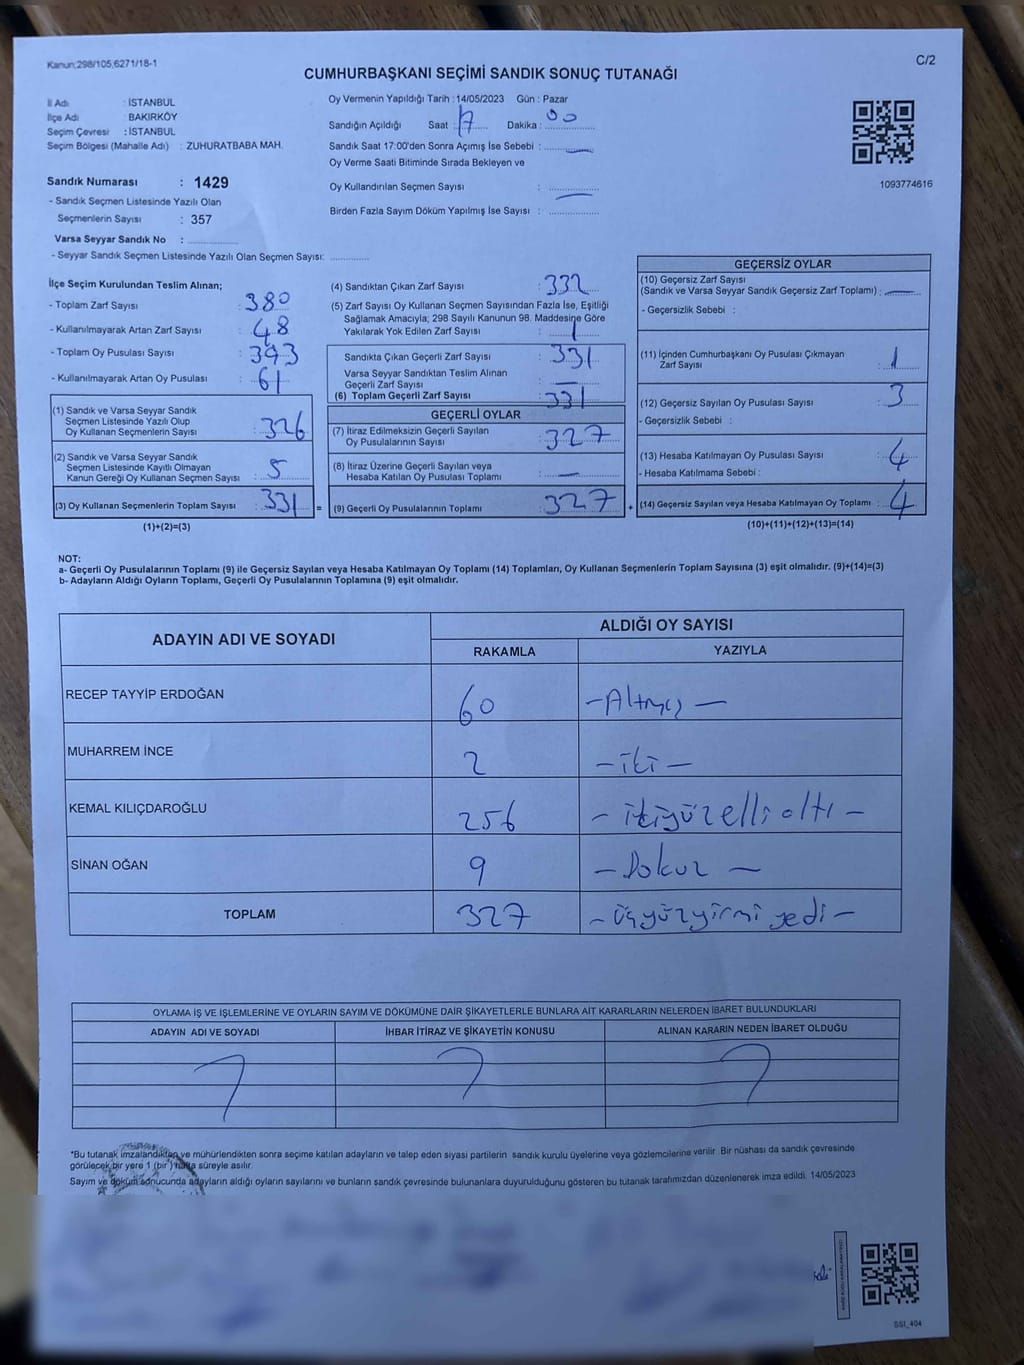 Kanun;298/105,6271/18-1
C/2
CUMHURBAŞKANI SEÇİMİ SANDIK SONUÇ TUTANAĞI
İl Adı : İSTANBUL
İlçe Adı : BAKIRKÖY
Seçim Çevresi : İSTANBUL
Seçim Bölgesi (Mahalle Adı) : ZUHURATBABA MAH.
Sandık Numarası : 1429
- Sandık Seçmen Listesinde Yazılı Olan
Seçmenlerin Sayısı : 357
Varsa Seyyar Sandık No :
- Seyyar Sandık Seçmen Listesinde Yazılı Olan Seçmen Sayısı:
Oy Vermenin Yapıldığı Tarih : 14/05/2023 Gün : Pazar
Sandığın Açıldığı Saat : 17 Dakika : 00
Sandık Saat 17:00'den Sonra Açımış İse Sebebi : —
Oy Verme Saati Bitiminde Sırada Bekleyen ve
Oy Kullandırılan Seçmen Sayısı : —
Birden Fazla Sayım Döküm Yapılmış İse Sayısı :
1093774616
İlçe Seçim Kurulundan Teslim Alınan;
- Toplam Zarf Sayısı : 380
- Kullanılmayarak Artan Zarf Sayısı : 48
- Toplam Oy Pusulası Sayısı : 393
- Kullanılmayarak Artan Oy Pusulası : 61
(1) Sandık ve Varsa Seyyar Sandık
Seçmen Listesinde Yazılı Olup
Oy Kullanan Seçmenlerin Sayısı : 326
(2) Sandık ve Varsa Seyyar Sandık
Seçmen Listesinde Kayıtlı Olmayan
Kanun Gereği Oy Kullanan Seçmen Sayısı : 5
(3) Oy Kullanan Seçmenlerin Toplam Sayısı : 331 =
(1)+(2)=(3)
(4) Sandıktan Çıkan Zarf Sayısı : 332
(5) Zarf Sayısı Oy Kullanan Seçmen Sayısından Fazla İse, Eşitliği
Sağlamak Amacıyla; 298 Sayılı Kanunun 98. Maddesine Göre
Yakılarak Yok Edilen Zarf Sayısı : 1
Sandıkta Çıkan Geçerli Zarf Sayısı : 331
Varsa Seyyar Sandıktan Teslim Alınan
Geçerli Zarf Sayısı : —
(6) Toplam Geçerli Zarf Sayısı : 331
GEÇERLİ OYLAR
(7) İtiraz Edilmeksizin Geçerli Sayılan
Oy Pusulalarının Sayısı : 327
(8) İtiraz Üzerine Geçerli Sayılan veya
Hesaba Katılan Oy Pusulası Toplamı : —
(9) Geçerli Oy Pusulalarının Toplamı : 327 +
GEÇERSİZ OYLAR
(10) Geçersiz Zarf Sayısı
(Sandık ve Varsa Seyyar Sandık Geçersiz Zarf Toplamı) : —
- Geçersizlik Sebebi :
(11) İçinden Cumhurbaşkanı Oy Pusulası Çıkmayan
Zarf Sayısı : 1
(12) Geçersiz Sayılan Oy Pusulası Sayısı : 3
- Geçersizlik Sebebi :
(13) Hesaba Katılmayan Oy Pusulası Sayısı : 4
- Hesaba Katılmama Sebebi :
(14) Geçersiz Sayılan veya Hesaba Katılmayan Oy Toplamı : 4
(10)+(11)+(12)+(13)=(14)
NOT:
a- Geçerli Oy Pusulalarının Toplamı (9) ile Geçersiz Sayılan veya Hesaba Katılmayan Oy Toplamı (14) Toplamları, Oy Kullanan Seçmenlerin Toplam Sayısına (3) eşit olmalıdır. (9)+(14)=(3)
b- Adayların Aldığı Oyların Toplamı, Geçerli Oy Pusulalarının Toplamına (9) eşit olmalıdır.
ADAYIN ADI VE SOYADI
ALDIĞI OY SAYISI
RAKAMLA YAZIYLA
RECEP TAYYİP ERDOĞAN 60 -Altmış-
MUHARREM İNCE 2 -iki-
KEMAL KILIÇDAROĞLU 256 -ikiyüzellialtı-
SİNAN OĞAN 9 -Dokuz-
TOPLAM 327 -üçyüzyirmi yedi-
OYLAMA İŞ VE İŞLEMLERİNE VE OYLARIN SAYIM VE DÖKÜMÜNE DAİR ŞİKAYETLERLE BUNLARA AİT KARARLARIN NELERDEN İBARET BULUNDUKLARI
ADAYIN ADI VE SOYADI İHBAR İTİRAZ VE ŞİKAYETİN KONUSU ALINAN KARARIN NEDEN İBARET OLDUĞU
*Bu tutanak imzalandıktan ve mühürlendikten sonra seçime katılan adayların ve talep eden siyasi partilerin sandık kurulu üyelerine veya gözlemcilerine verilir. Bir nüshası da sandık çevresinde
görülecek bir yere 1 (bir) hafta süreyle asılır.
Sayım ve döküm sonucunda adayların aldığı oyların sayılarını ve bunların sandık çevresinde bulunanlara duyurulduğunu gösteren bu tutanak tarafımızdan düzenlenerek imza edildi. 14/05/2023
SSI_404